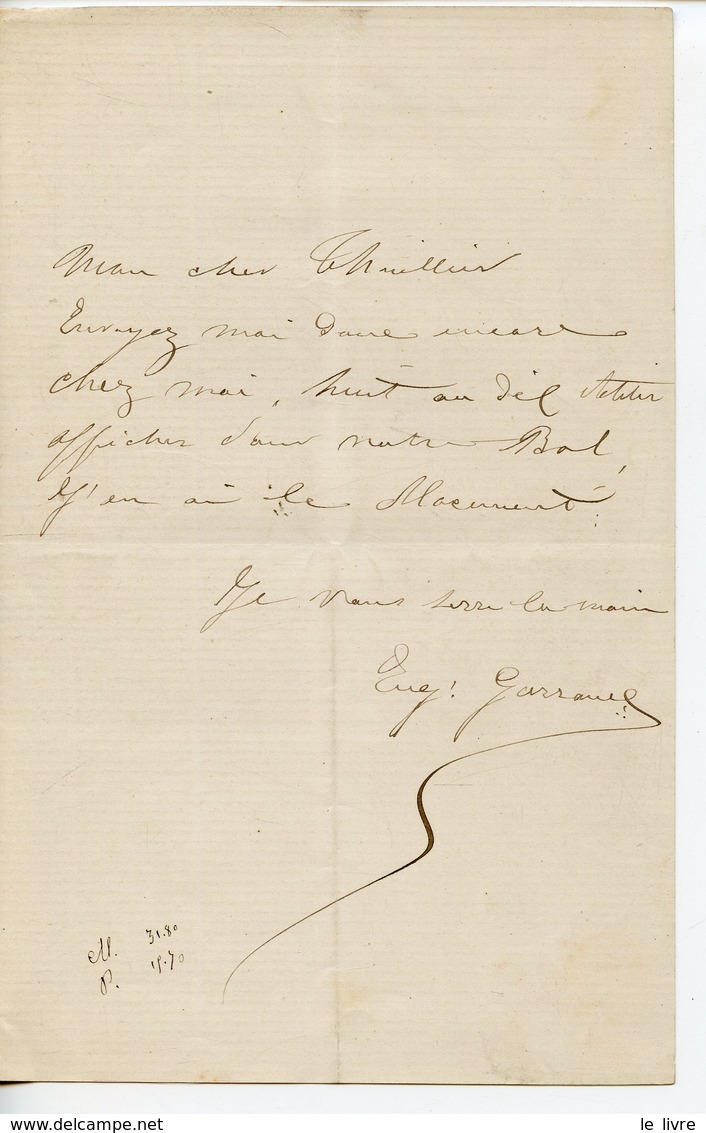 Mon cher Thuillier
Envoyez moi donc encore
chez moi, huit ou dix petites
affiches pour notre Bal,
J'en ai le placement.
Je vous serre la main
Eug. Garraud
M. 31.80
P. 15.70
www.delcampe.net
le livre